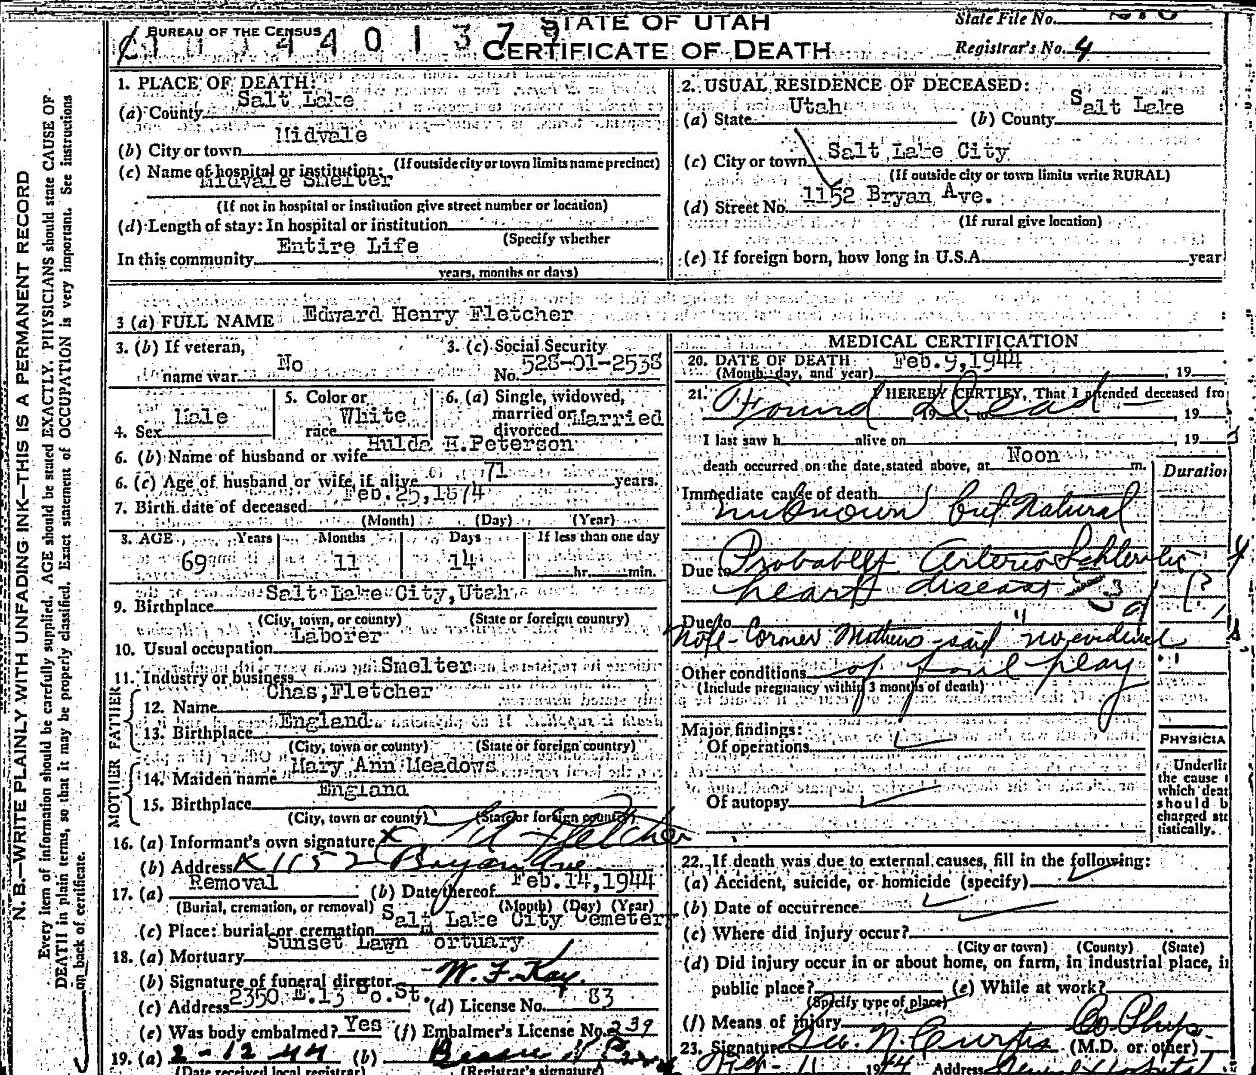 STATE OF UTAH
CERTIFICATE OF DEATH
BUREAU OF THE CENSUS
State File No.
Registrar's No. 4
1. PLACE OF DEATH:
(a) County Salt Lake
(b) City or town Midvale
(If outside city or town limits name precinct)
(c) Name of hospital or institution:
Midvale Smelter
(If not in hospital or institution give street number or location)
(d) Length of stay: In hospital or institution
(Specify whether
In this community Entire Life
years, months or days)
2. USUAL RESIDENCE OF DECEASED:
(a) State Utah (b) County Salt Lake
(c) City or town Salt Lake City
(If outside city or town limits write RURAL)
(d) Street No. 1152 Bryan Ave.
(If rural give location)
(e) If foreign born, how long in U.S.A. year
3 (a) FULL NAME Edward Henry Fletcher
3. (b) If veteran,
name war No
3. (c) Social Security
No. 528-01-2538
4. Sex Male
5. Color or
race White
6. (a) Single, widowed,
married or
divorced Married
6. (b) Name of husband or wife Hulda H.Peterson
6. (c) Age of husband or wife, if alive 71 years.
7. Birth date of deceased Feb.25,1874
(Month) (Day) (Year)
8. AGE Years Months Days If less than one day
69 11 14 hr. min.
9. Birthplace Salt Lake City,Utah
(City, town, or county) (State or foreign country)
10. Usual occupation Laborer
11. Industry or business Smelter
FATHER
12. Name Chas,Fletcher
13. Birthplace England
(City, town or county) (State or foreign country)
MOTHER
14. Maiden name Mary Ann Meadows
15. Birthplace England
(City, town or county) (State or foreign country)
16. (a) Informant's own signature x Fletcher
(b) Address x 1152 Bryan Ave
17. (a) Removal (b) Date thereof Feb.14,1944
(Burial, cremation, or removal) (Month) (Day) (Year)
(c) Place: burial or cremation Salt Lake City Cemetery
18. (a) Mortuary Sunset Lawn Mortuary
(b) Signature of funeral director W. F. Kay.
(c) Address 2350 E.13 So.St. (d) License No. 83
(e) Was body embalmed? Yes (f) Embalmer's License No. 239
19. (a) 2-12-44 (b) Bessie
(Date received local registrar) (Registrar's signature)
MEDICAL CERTIFICATION
20. DATE OF DEATH Feb.9,1944
(Month, day, and year) , 19
21. I HEREBY CERTIFY, That I attended deceased fro
Found dead 19 , 19
I last saw h alive on , 19
death occurred on the date stated above, at Noon m.
Duration
Immediate cause of death
unknown but Natural
Due to Probably Arterio Schlerotic
heart disease
Due to
Note - Corner Mathews said "no evidence
of foul play
Other conditions
(Include pregnancy within 3 months of death)
Major findings:
Of operations
Of autopsy
PHYSICIA
Underlin
the cause
which deat
should b
charged sta
tistically.
22. If death was due to external causes, fill in the following:
(a) Accident, suicide, or homicide (specify)
(b) Date of occurrence
(c) Where did injury occur?
(City or town) (County) (State)
(d) Did injury occur in or about home, on farm, in industrial place, i
public place? (e) While at work?
(Specify type of place)
(f) Means of injury
Co Phys
23. Signature Geo. N. Curtis (M.D. or other)
1944 Address
N. B.—WRITE PLAINLY WITH UNFADING INK—THIS IS A PERMANENT RECORD
Every item of information should be carefully supplied. AGE should be stated EXACTLY. PHYSICIANS should state CAUSE OF
DEATH in plain terms, so that it may be properly classified. Exact statement of OCCUPATION is very important. See instructions
on back of certificate.